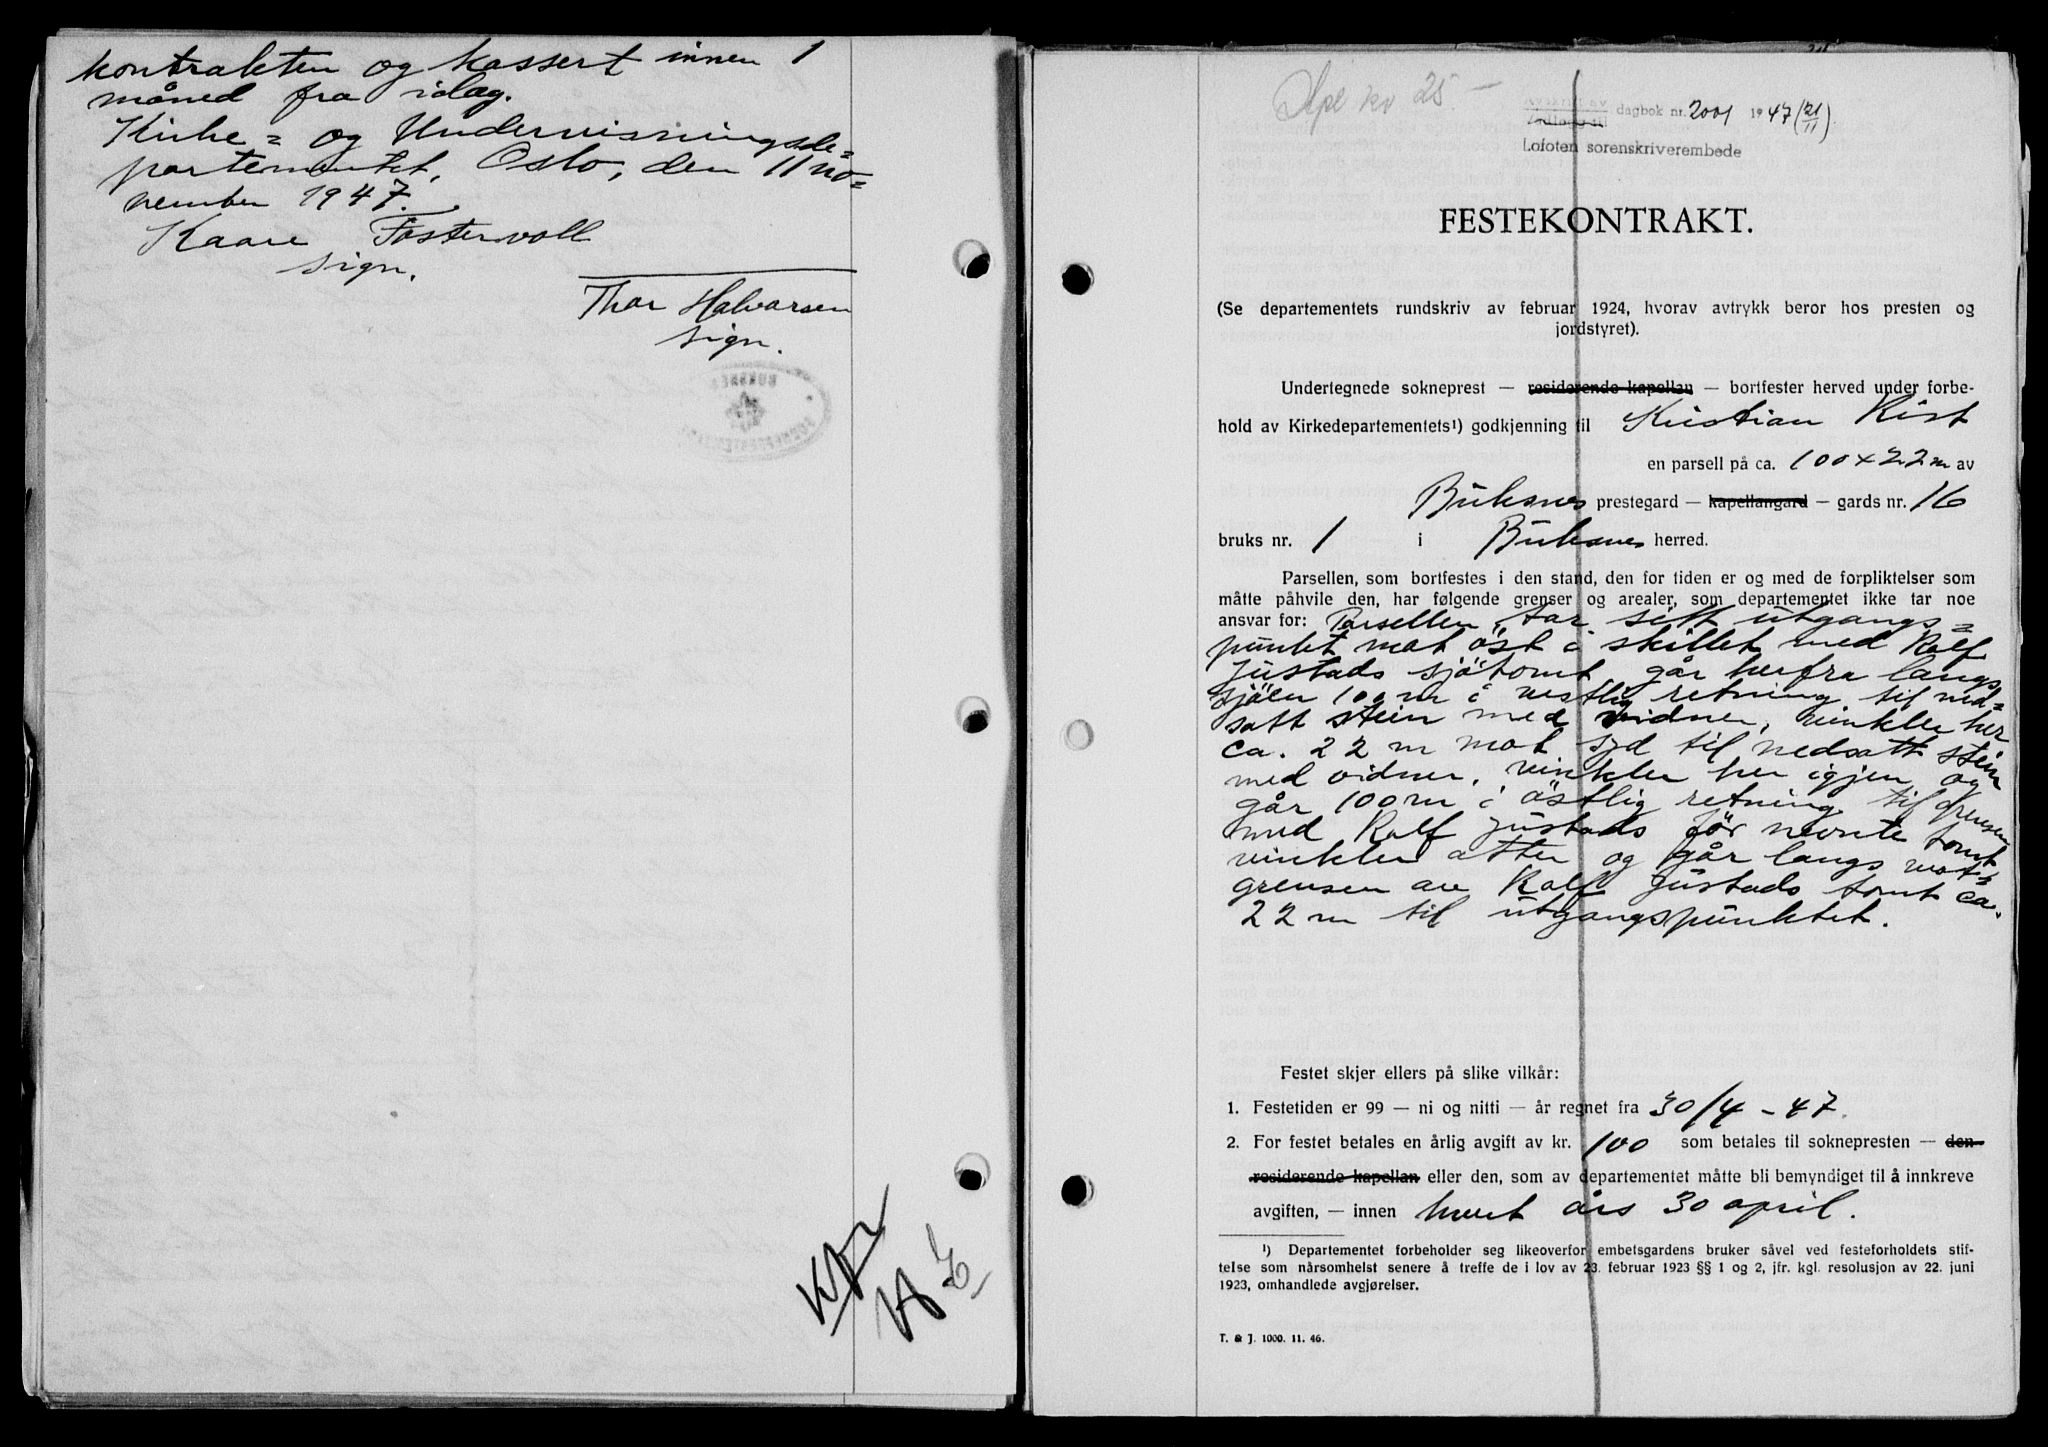 kontrakten og kassert innen 1
måned fra idag.
Kirke= og Undervisningsde=
partementet, Oslo, den 11 no=
vember 1947.
Kaare Fostervoll
sign.
Thor Halvorsen
sign.
dagbok nr. 2001 1947 (21/11)
Lofoten sorenskriverembede
FESTEKONTRAKT.
(Se departementets rundskriv av februar 1924, hvorav avtrykk beror hos presten og
jordstyret).
Undertegnede sokneprest — residerende kapellan — bortfester herved under forbe-
hold av Kirkedepartementets¹) godkjenning til Kristian Rist
en parsell på ca. 100 x 22 m av
Buksnes prestegard — kapellangard — gards nr. 16
bruks nr. 1 i Buksnes herred.
Parsellen, som bortfestes i den stand, den for tiden er og med de forpliktelser som
måtte påhvile den, har følgende grenser og arealer, som departementet ikke tar noe
ansvar for: Parsellen tar sitt utgangs=
punkt mot öst i skillet med Rolf
Justads sjötomt går herfra langs
sjöen 100 m i vestlig retning til ned=
satt stein med vidner, vinkler her
ca. 22 m mot syd til nedsatt stein
med vidner, vinkler her igjen og
går 100 m i östlig retning til grensen
med Rolf Justads för nevnte tomt
vinkler atter og går langs vest=
grensen av Rolf Justads tomt ca.
22 m til utgangspunktet.
Festet skjer ellers på slike vilkår:
1. Festetiden er 99 — ni og nitti — år regnet fra 30/4 - 47.
2. For festet betales en årlig avgift av kr. 100 som betales til soknepresten — den
residerende kapellan eller den, som av departementet måtte bli bemyndiget til å innkreve
avgiften, — innen hvert års 30 april.
¹) Departementet forbeholder seg likeoverfor embetsgardens bruker såvel ved festeforholdets stif-
telse som nårsomhelst senere å treffe de i lov av 23. februar 1923 §§ 1 og 2, jfr. kgl. resolusjon av 22. juni
1923, omhandlede avgjørelser.
T. & J. 1000. 11. 46.